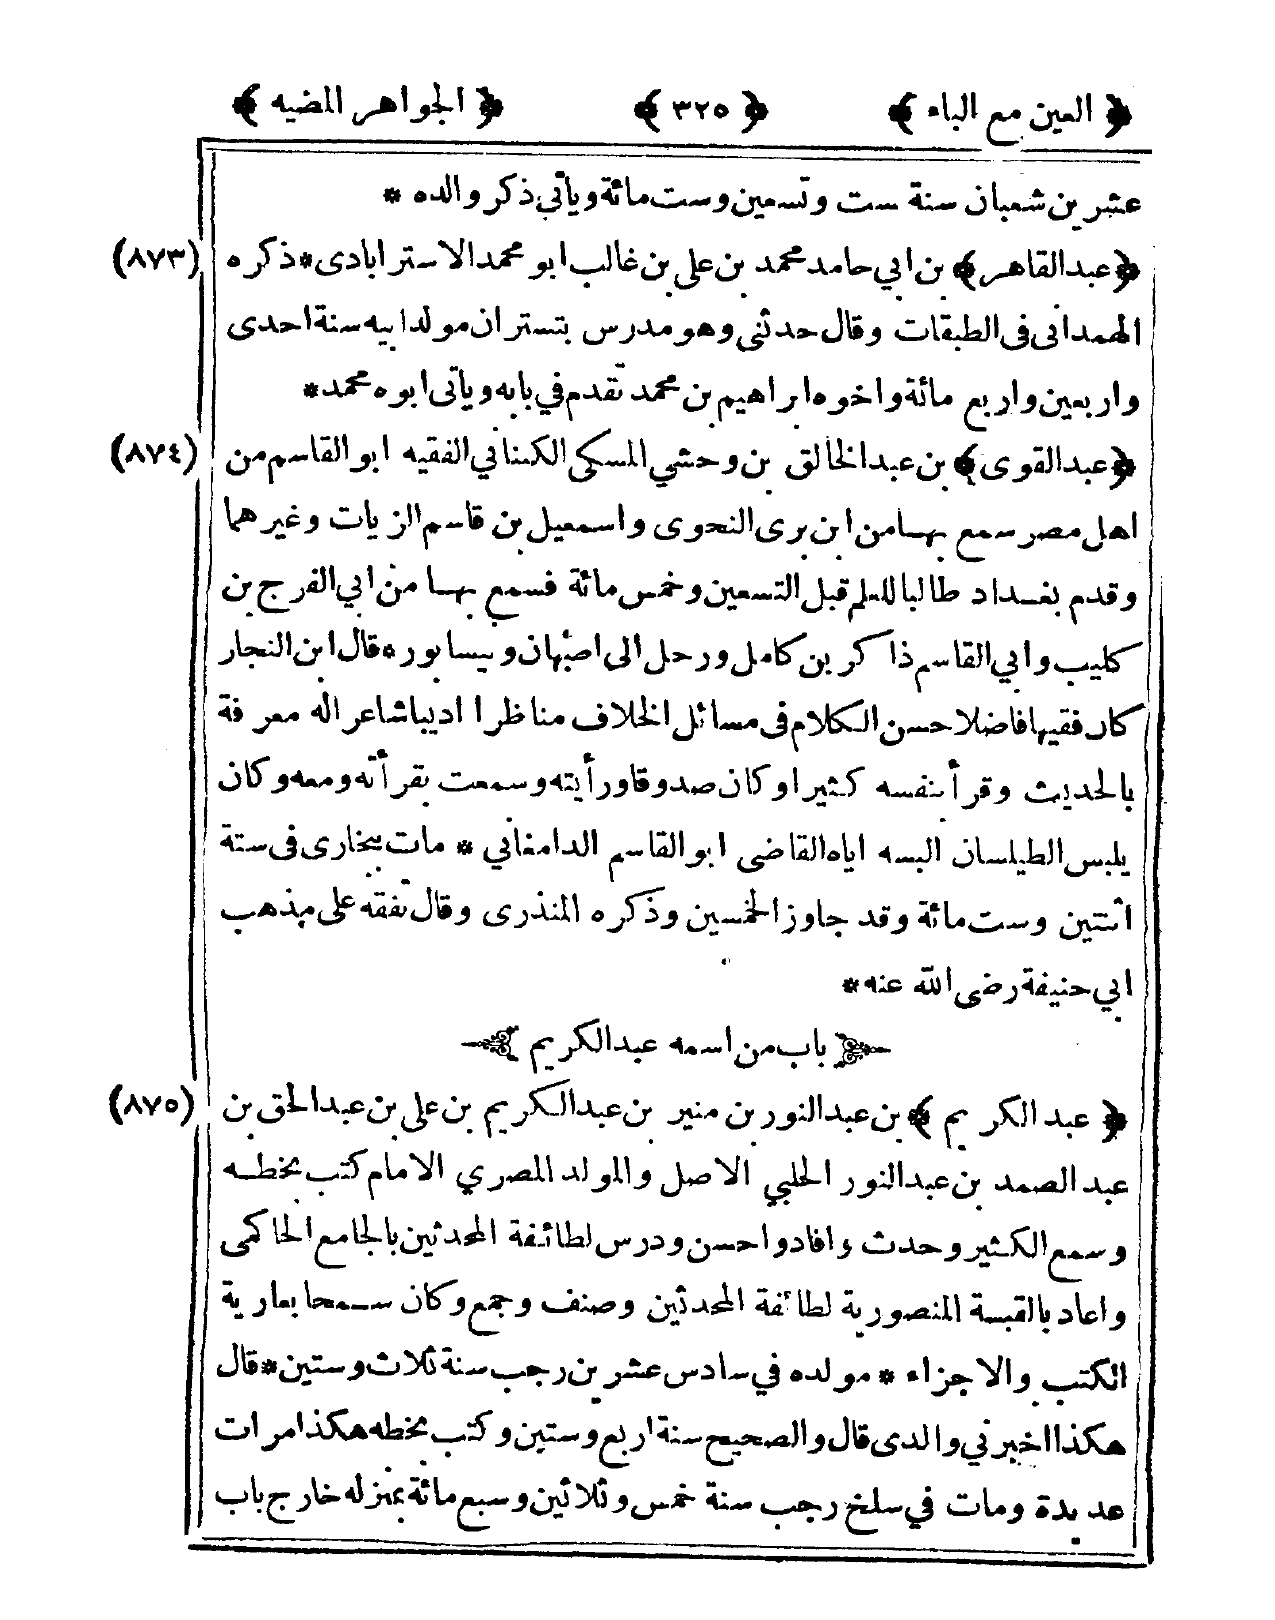 ﴿ العين مع الباء ﴾ ﴿ ٣٢٥ ﴾ ﴿ الجواهر المضيه ﴾
عشرين شعبان سنة ست وتسعين وست مائة ويأتي ذكر والده *
﴿عبد القاهر﴾ بن ابي حامد محمد بن علي بن غالب ابو محمد الاسترابادى * ذكره (٨٧٣)
الهمداني فى الطبقات وقال حدثنى وهو مدرس بتستران مولد ابيه سنة احدى
واربعين واربع مائة واخوه ابراهيم بن محمد تقدم في بابه ويأتى ابوه محمد *
﴿عبد القوى﴾ بن عبد الخالق بن وحشي المسكى الكناني الفقيه ابو القاسم من (٨٧٤)
اهل مصر سمع بها من ابن برى النحوى واسمعيل بن قاسم الزيات وغيرهما
وقدم بغداد طالبا للعلم قبل التسعين وخمس مائة فسمع بها من ابي الفرج بن
كليب وابي القاسم ذاكر بن كامل ورحل الى اصبهان ونيسابور * قال ابن النجار
كان فقيها فاضلا حسن الكلام فى مسائل الخلاف مناظرا اديبا شاعرا له معرفة
بالحديث وقرأ بنفسه كثيرا وكان صدوقا ورأيته وسمعت بقرأته ومعه وكان
يلبس الطيلسان البسه اياه القاضى ابو القاسم الدامغاني * مات ببخارى فى ستة
اثنتين وست مائة وقد جاوز الخمسين وذكره المنذرى وقال تفقه على مذهب
ابي حنيفة رضى الله عنه *
باب من اسمه عبد الكريم
﴿ عبد الكريم ﴾ بن عبد النور بن منير بن عبد الكريم بن علي بن عبد الحق بن (٨٧٥)
عبد الصمد بن عبد النور الحلبي الاصل والمولد المصري الامام كتب بخطه
وسمع الكثير وحدث وافاد واحسن ودرس لطائفة المحدثين بالجامع الحاكمى
واعاد بالقبسة المنصورية لطائفة المحدثين وصنف وجمع وكان سمحا بعارية
الكتب والاجزاء * مولده في سادس عشر بن رجب سنة ثلاث وستين * قال
هكذا اخبرني والدى قال والصحيح سنة اربع وستين وكتب بخطه هكذا مرات
عديدة ومات في سلخ رجب سنة خمس وثلاثين وسبع مائة بمنزله خارج باب